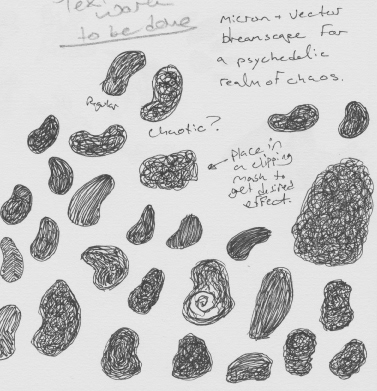 work
to be done
micron + vector
breanscape for
a psychedelic
realm of chaos.
Regular
chaotic?
place in
a clipping
mask to
get desired
effect.